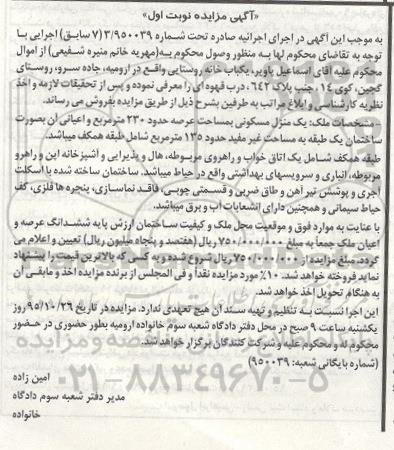 «آگهی مزایده نوبت اول»
به موجب این آگهی در اجرای اجرائیه صادره تحت شماره ۳/۹۵۰۰۳۹ (۷ سابق) اجرایی با
توجه به تقاضای محکوم لها به منظور وصول محکوم به(مهریه خانم منیره شفیعی) از اموال
محکوم علیه آقای اسماعیل یاوپر، یکباب خانه روستایی واقع در ارومیه، جاده سرو، روستای
گجین، کوی ۱۴، جنب پلاک ۶۴۲، درب قهوه ای را معرفی نموده و پس از تحقیقات لازمه و اخذ
نظریه کارشناسی و ابلاغ مراتب به طرفین بشرح ذیل از طریق مزایده بفروش می رساند.
- مشخصات ملک: یک منزل مسکونی بمساحت عرصه حدود ۲۳۰ مترمربع و اعیانی آن بصورت
ساختمان یک طبقه به مساحت غیر مفید حدود ۱۳۵ مترمربع شامل طبقه همکف میباشد.
طبقه همکف شامل یک اتاق خواب و راهروی مربوطه، هال و پذیرایی و آشپزخانه این و راهرو
مربوطه، انباری و سرویسهای بهداشتی واقع در حیاط میباشد. ساختمان ساخته شده با اسکلت
آجری و پوشش تیر آهن و طاق ضربی و قسمتی چوبی، فاقد نماسازی، پنجره ها فلزی، کف
حیاط سیمانی و همچنین دارای انشعابات آب و برق میباشد.
با عنایت به موارد فوق و موقعیت محل ملک و کیفیت ساختمان ارزش پایه ششدانگ عرصه و
اعیان ملک جمعاً به مبلغ ۷۵۰/۰۰۰/۰۰۰ ریال (هفتصد و پنجاه میلیون ریال) تعیین و اعلام می
گردد. مبلغ مزایده از ۷۵۰/۰۰۰/۰۰۰ ریال شروع شده و به کسی که بالاترین قیمت را پیشنهاد
نماید فروخته خواهد شد. ۱۰٪ مورد مزایده نقداً و فی المجلس از برنده مزایده اخذ و مابقی آن
به هنگام تحویل اخذ خواهد شد.
این اجرا نسبت به تنظیم و تهیه سند آن هیچ تعهدی ندارد. مزایده در تاریخ ۹۵/۱۰/۲۶ روز
یکشنبه ساعت ۹ صبح در محل دفتر دادگاه شعبه سوم خانواده ارومیه بطور حضوری در حضور
محکوم له و محکوم علیه و شرکت کنندگان برگزار خواهد شد.
(شماره بایگانی شعبه: ۹۵۰۰۳۹)
امین زاده
مدیر دفتر شعبه سوم دادگاه
خانواده
۰۲۱-۸۸۳۴۹۶۷۰-۵